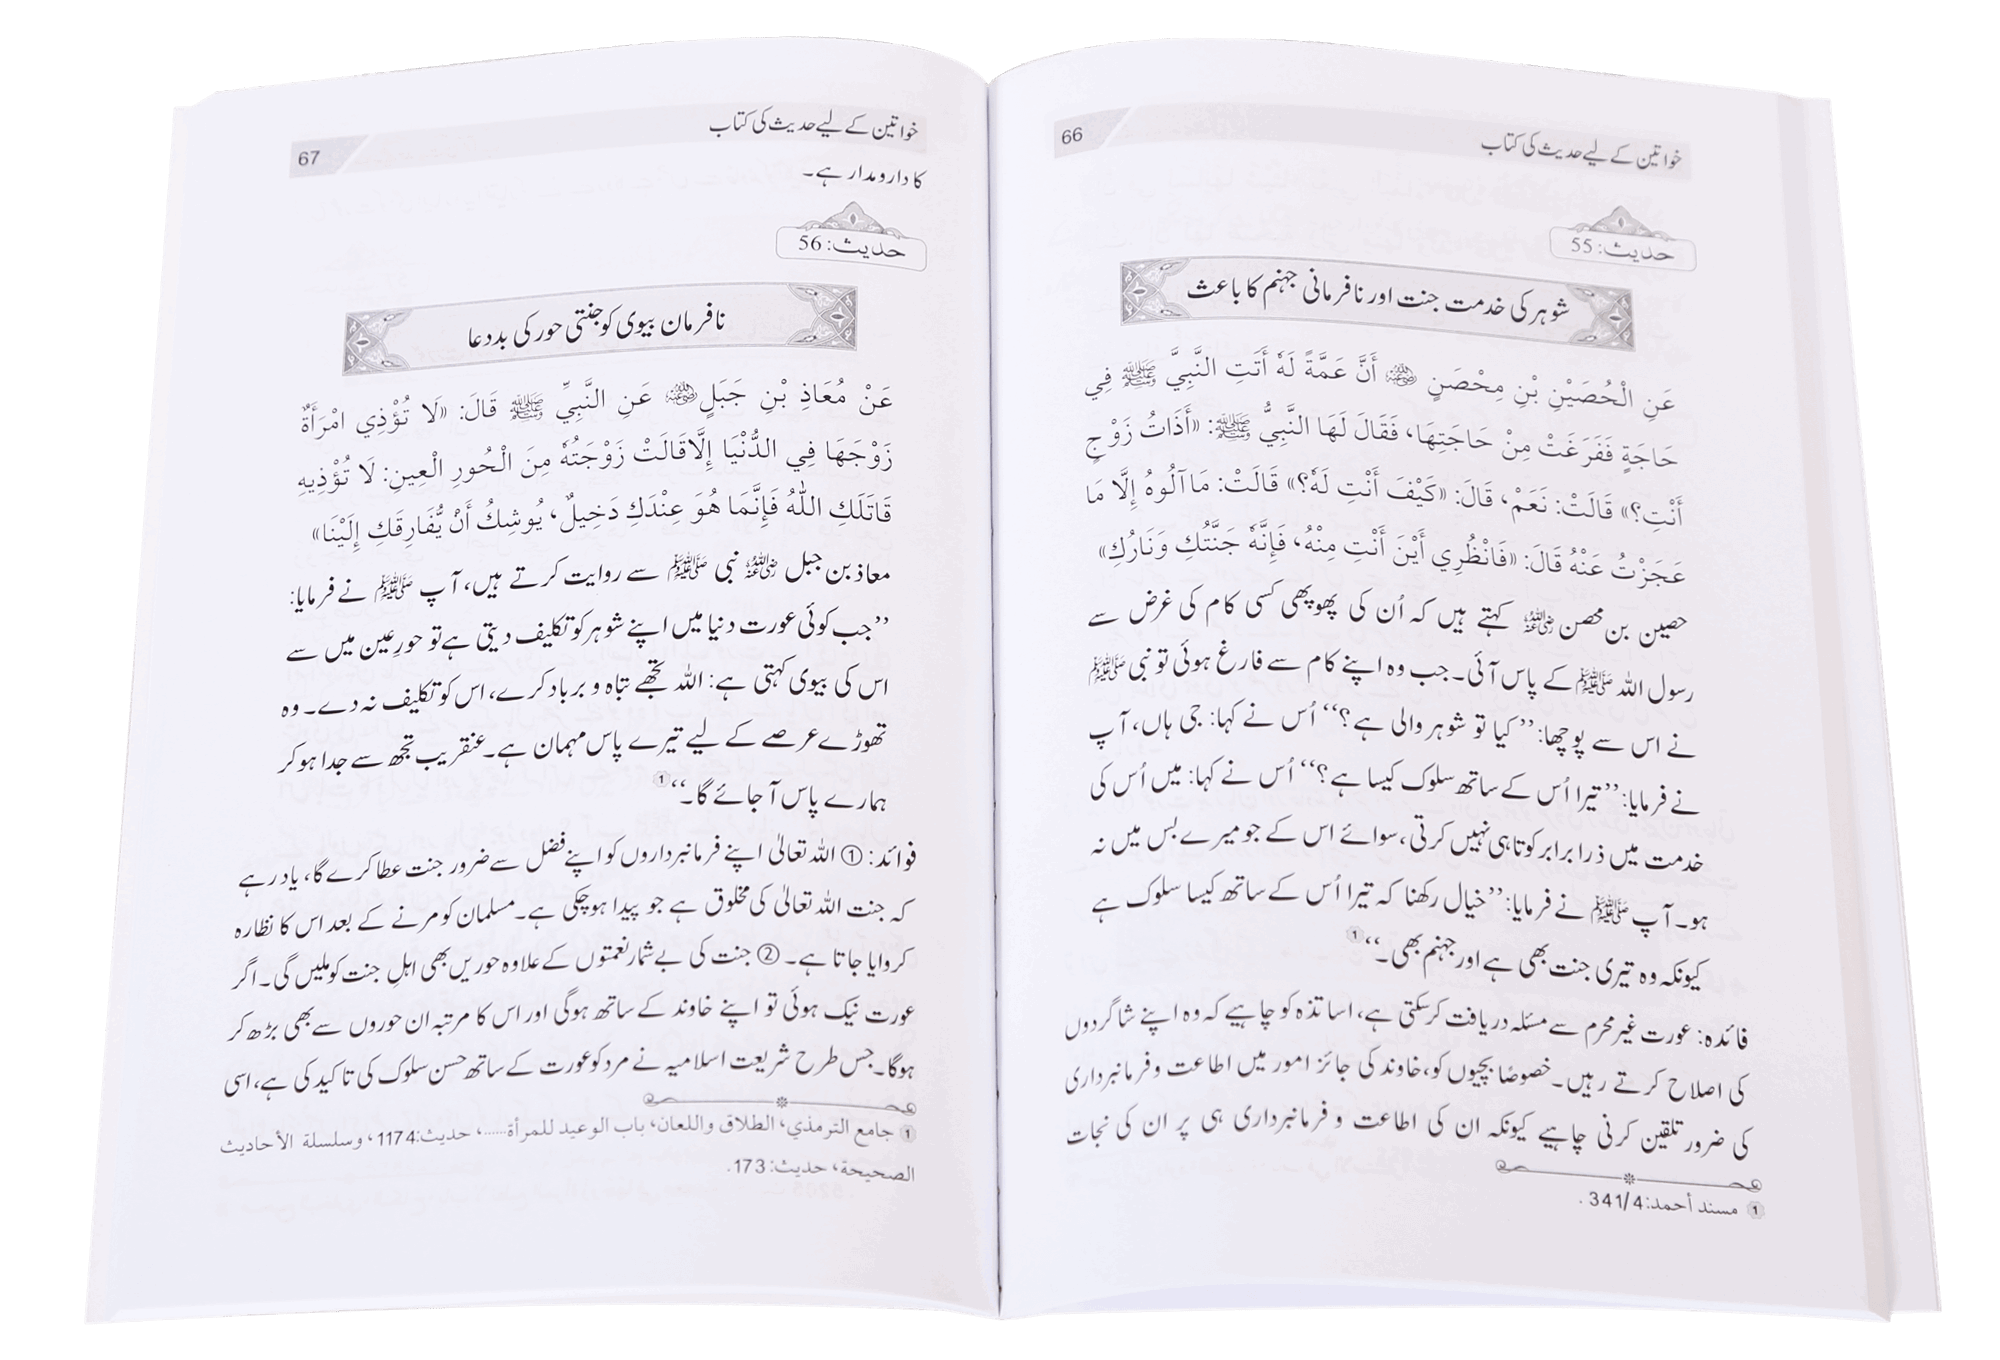 خواتین کے لیے حدیث کی کتاب
66
حدیث: 55
شوہر کی خدمت جنت اور نافرمانی جہنم کا باعث
عَنِ الْحُصَيْنِ بْنِ مِحْصَنٍ رضی اللہ عنہ أَنَّ عَمَّةً لَهٗ أَتَتِ النَّبِيَّ ﷺ فِي
حَاجَةٍ فَفَرَغَتْ مِنْ حَاجَتِهَا، فَقَالَ لَهَا النَّبِيُّ ﷺ: «أَذَاتُ زَوْجٍ
أَنْتِ؟» قَالَتْ: نَعَمْ، قَالَ: «كَيْفَ أَنْتِ لَهٗ؟» قَالَتْ: مَا آلُوهُ إِلَّا مَا
عَجَزْتُ عَنْهُ قَالَ: «فَانْظُرِي أَيْنَ أَنْتِ مِنْهُ، فَإِنَّهٗ جَنَّتُكِ وَنَارُكِ»
حصین بن محصن رضی اللہ عنہ کہتے ہیں کہ اُن کی پھوپھی کسی کام کی غرض سے
رسول اللہ ﷺ کے پاس آئی۔ جب وہ اپنے کام سے فارغ ہوئی تو نبی ﷺ
نے اس سے پوچھا: ’’کیا تو شوہر والی ہے؟‘‘ اُس نے کہا: جی ہاں، آپ
نے فرمایا: ’’تیرا اُس کے ساتھ سلوک کیسا ہے؟‘‘ اُس نے کہا: میں اُس کی
خدمت میں ذرا برابر کوتاہی نہیں کرتی، سوائے اس کے جو میرے بس میں نہ
ہو۔ آپ ﷺ نے فرمایا: ’’خیال رکھنا کہ تیرا اُس کے ساتھ کیسا سلوک ہے
کیونکہ وہ تیری جنت بھی ہے اور جہنم بھی۔‘‘ 1
فائدہ: عورت غیر محرم سے مسئلہ دریافت کرسکتی ہے، اساتذہ کو چاہیے کہ وہ اپنے شاگردوں
کی اصلاح کرتے رہیں۔ خصوصًا بچیوں کو، خاوند کی جائز امور میں اطاعت و فرمانبرداری
کی ضرور تلقین کرنی چاہیے کیونکہ ان کی اطاعت و فرمانبرداری ہی پر ان کی نجات
1 مسند أحمد: 341/4.
خواتین کے لیے حدیث کی کتاب
67
کا دارومدار ہے۔
حدیث: 56
نافرمان بیوی کو جنتی حور کی بددعا
عَنْ مُعَاذِ بْنِ جَبَلٍ رضی اللہ عنہ عَنِ النَّبِيِّ ﷺ قَالَ: «لَا تُؤْذِي امْرَأَةٌ
زَوْجَهَا فِي الدُّنْيَا إِلَّا قَالَتْ زَوْجَتُهٗ مِنَ الْحُورِ الْعِينِ: لَا تُؤْذِيهِ
قَاتَلَكِ اللّٰهُ فَإِنَّمَا هُوَ عِنْدَكِ دَخِيلٌ، يُوشِكُ أَنْ يُّفَارِقَكِ إِلَيْنَا»
معاذ بن جبل رضی اللہ عنہ نبی ﷺ سے روایت کرتے ہیں، آپ ﷺ نے فرمایا:
’’جب کوئی عورت دنیا میں اپنے شوہر کو تکلیف دیتی ہے تو حورِ عین میں سے
اس کی بیوی کہتی ہے: اللہ تجھے تباہ و برباد کرے، اس کو تکلیف نہ دے۔ وہ
تھوڑے عرصے کے لیے تیرے پاس مہمان ہے۔ عنقریب تجھ سے جدا ہو کر
ہمارے پاس آ جائے گا۔‘‘ 1
فوائد: ① اللہ تعالیٰ اپنے فرمانبرداروں کو اپنے فضل سے ضرور جنت عطا کرے گا، یاد رہے
کہ جنت اللہ تعالیٰ کی مخلوق ہے جو پیدا ہوچکی ہے۔ مسلمان کو مرنے کے بعد اس کا نظارہ
کروایا جاتا ہے۔ ② جنت کی بے شمار نعمتوں کے علاوہ حوریں بھی اہلِ جنت کو ملیں گی۔ اگر
عورت نیک ہوئی تو اپنے خاوند کے ساتھ ہوگی اور اس کا مرتبہ ان حوروں سے بھی بڑھ کر
ہوگا۔ جس طرح شریعت اسلامیہ نے مرد کو عورت کے ساتھ حسن سلوک کی تاکید کی ہے، اسی
1 جامع الترمذي، الطلاق واللعان، باب الوعيد للمرأة......، حديث: 1174، وسلسلة الأحاديث
الصحيحة، حديث: 173.